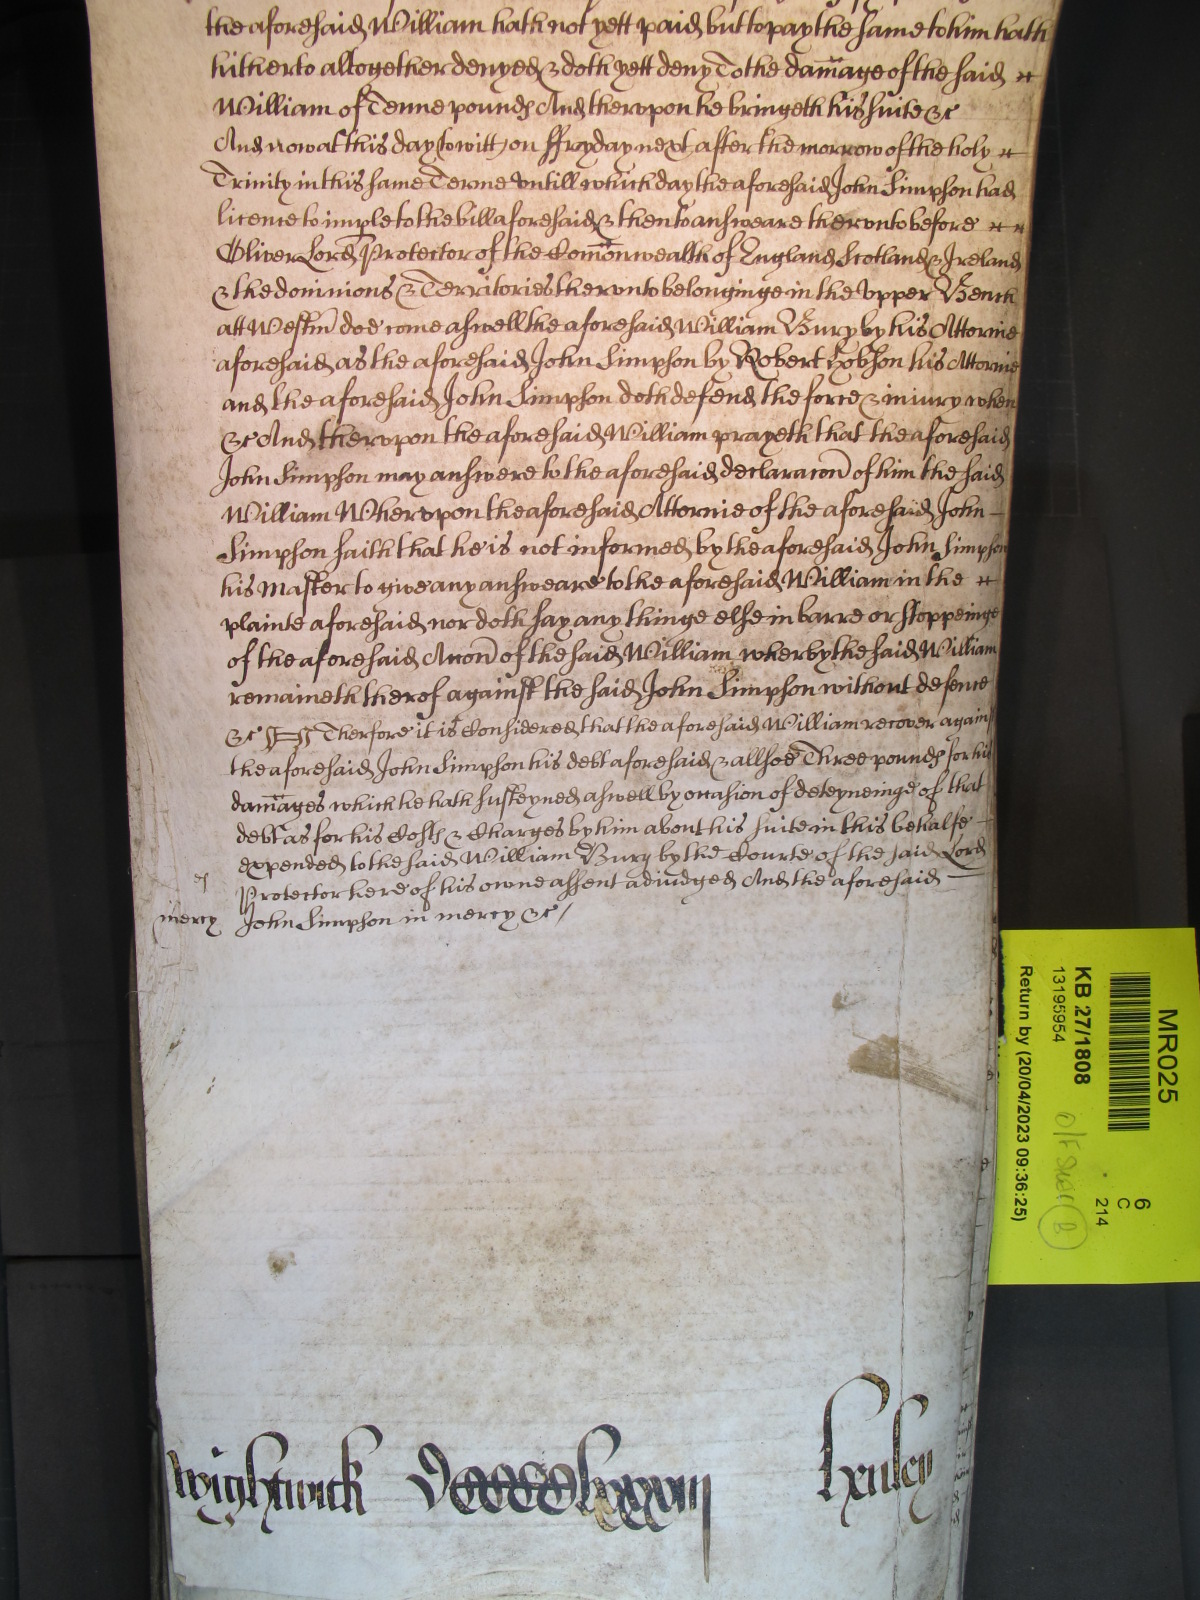 the aforesaid William hath not yett paid but to pay the same to him hath
hitherto altogether denyed & doth yett deny To the dam̄age of the said
William of Tenne pounds And therupon he bringeth his suite &c
And now at this day (to witt) on ffryday next after the morrow of the holy
Trinity in this same Terme untill which day the aforesaid John Simpson had
licence to imple to the bill aforesaid & then to answeare therunto before
Oliver Lord Protector of the Com̄onwealth of England Scotland & Ireland
& the dominions & Territories therunto belonginge in the upper Bench
att Westm̄ doe come aswell the aforesaid William Bury by his Attornie
aforesaid as the aforesaid John Simpson by Robert Hobson his Attornie
and the aforesaid John Simpson doth defend the force & iniury when
&c And therupon the aforesaid William prayeth that the aforesaid
John Simpson may answere to the aforesaid declaracon̄ of him the said
William Wherupon the aforesaid Attornie of the aforesaid John
Simpson saith that he is not informed by the aforesaid John Simpson
his Master to give any answeare to the aforesaid William in the
plainte aforesaid nor doth say any thinge else in barre or stoppeinge
of the aforesaid Accon̄ of the said William wherby the said William
remaineth therof against the said John Simpson without defence
&c Therfore it is Considered that the aforesaid William recover against
the aforesaid John Simpson his debt aforesaid & allsoe Three pounds for his
dam̄ages which he hath susteyned aswell by occasion of deteyneinge of that
debt as for his Costs & Charges by him about his suite in this behalfe
expended to the said William Bury by the Courte of the said Lord
Protector here of his owne assent adiudged And the aforesaid
mercy John Simpson in mercy &c /
MR025
6
C
214
KB 27/1808
13195954
Return by (20/04/2023 09:36:25)
B
Wightwick
Henley